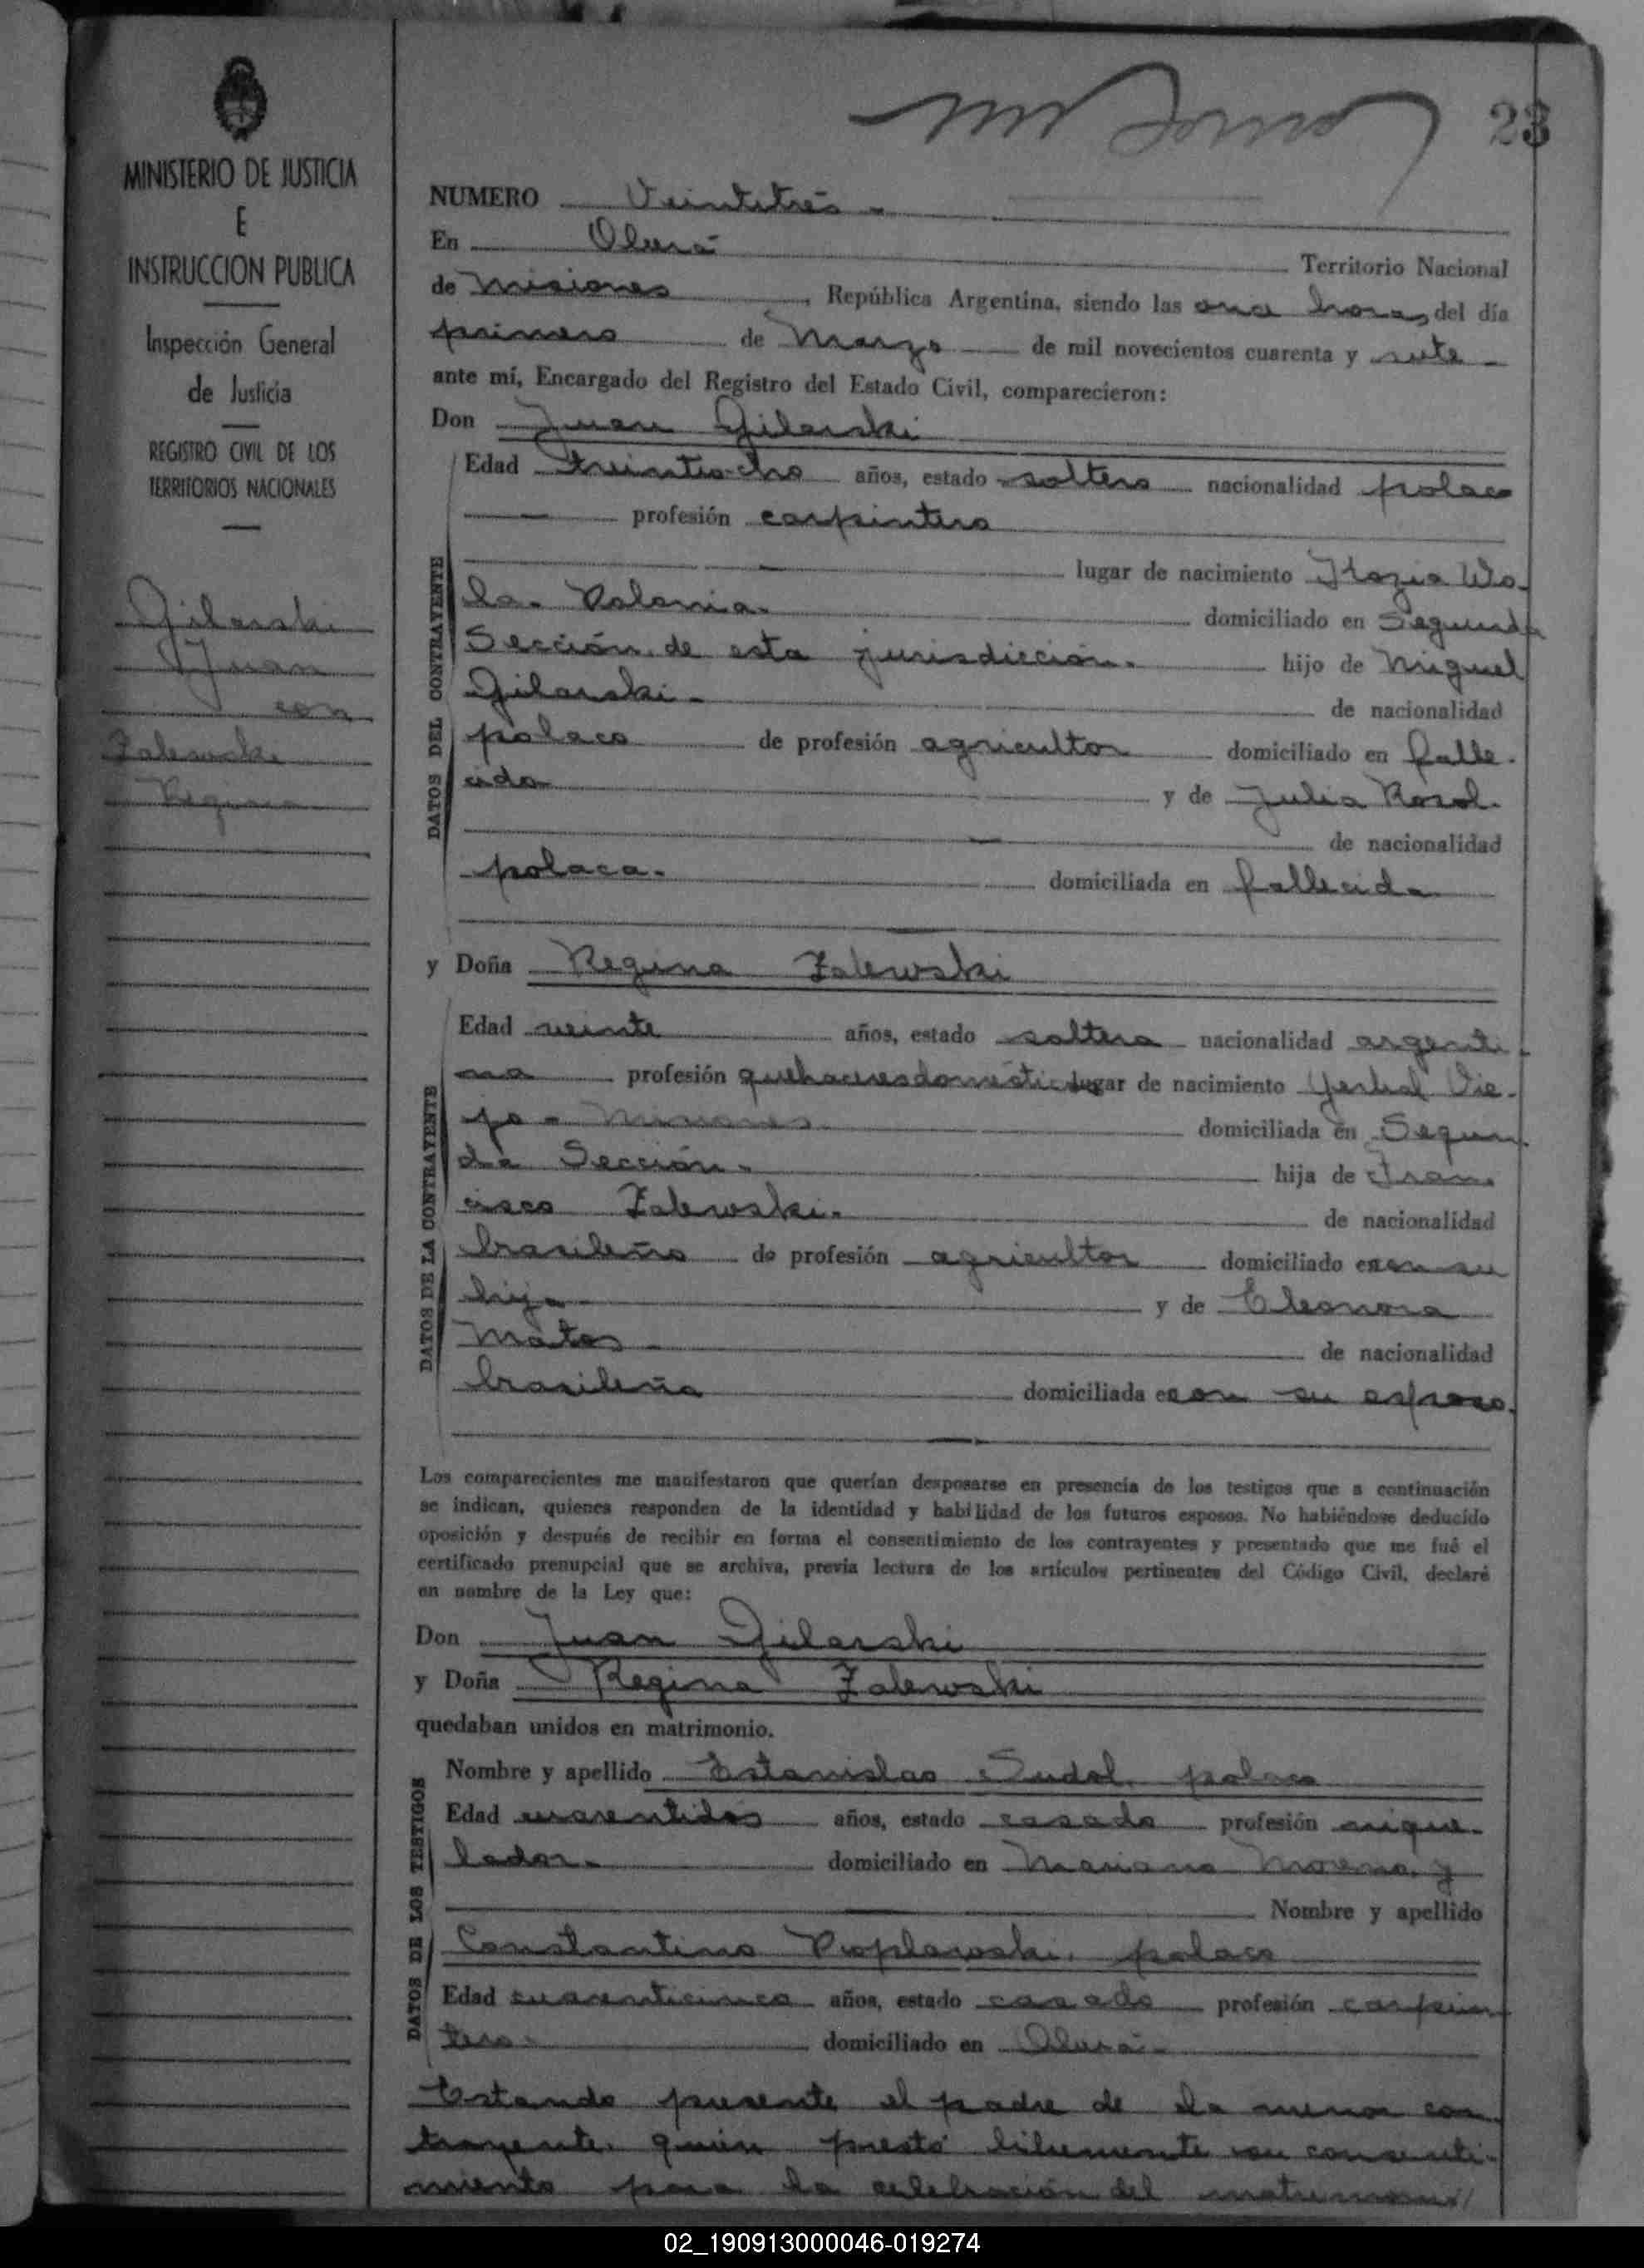 23
MINISTERIO DE JUSTICIA
E
INSTRUCCION PUBLICA
Inspección General
de Justicia
REGISTRO CIVIL DE LOS
TERRITORIOS NACIONALES
Gilarski
Juan
con
Zalewski
Regina
NUMERO Veintitrés -
En Oberá Territorio Nacional
de Misiones, República Argentina, siendo las once horas, del día
primero de Marzo de mil novecientos cuarenta y siete
ante mí, Encargado del Registro del Estado Civil, comparecieron:
Don Juan Gilarski
DATOS DEL CONTRAYENTE
Edad treintiocho años, estado soltero nacionalidad polaco
profesión carpintero
lugar de nacimiento Wo-
la. Polonia. domiciliado en Segunda
Sección de esta jurisdicción. hijo de Miguel
Gilarski - de nacionalidad
polaco de profesión agricultor domiciliado en falle-
cido y de Julia Rosol.
de nacionalidad
polaca. domiciliada en fallecida
y Doña Regina Zalewski
DATOS DE LA CONTRAYENTE
Edad veinte años, estado soltera nacionalidad argenti-
na profesión quehaceres domésticos lugar de nacimiento Yerbal Vie-
jo - Misiones domiciliada en Segun-
da Sección. hija de Fran-
cisco Zalewski. de nacionalidad
brasileño de profesión agricultor domiciliado en con su
hija y de Eleonora
Matos de nacionalidad
brasileña domiciliada en con su esposo.
Los comparecientes me manifestaron que querían desposarse en presencia de los testigos que a continuación
se indican, quienes responden de la identidad y habilidad de los futuros esposos. No habiéndose deducido
oposición y después de recibir en forma el consentimiento de los contrayentes y presentado que me fué el
certificado prenupcial que se archiva, previa lectura de los artículos pertinentes del Código Civil, declaré
en nombre de la Ley que:
Don Juan Gilarski
y Doña Regina Zalewski
quedaban unidos en matrimonio.
DATOS DE LOS TESTIGOS
Nombre y apellido Estanislao Sudol, polaco
Edad cuarentidós años, estado casado profesión nique-
lador. domiciliado en Mariano Moreno, y
Nombre y apellido
Constantino Poplawski, polaco
Edad cuarenticinco años, estado casado profesión carpin-
tero. domiciliado en Oberá -
Estando presente el padre de la menor con-
trayente, quién prestó libremente su consenti-
miento para la celebración del matrimonio//
02_190913000046-019274